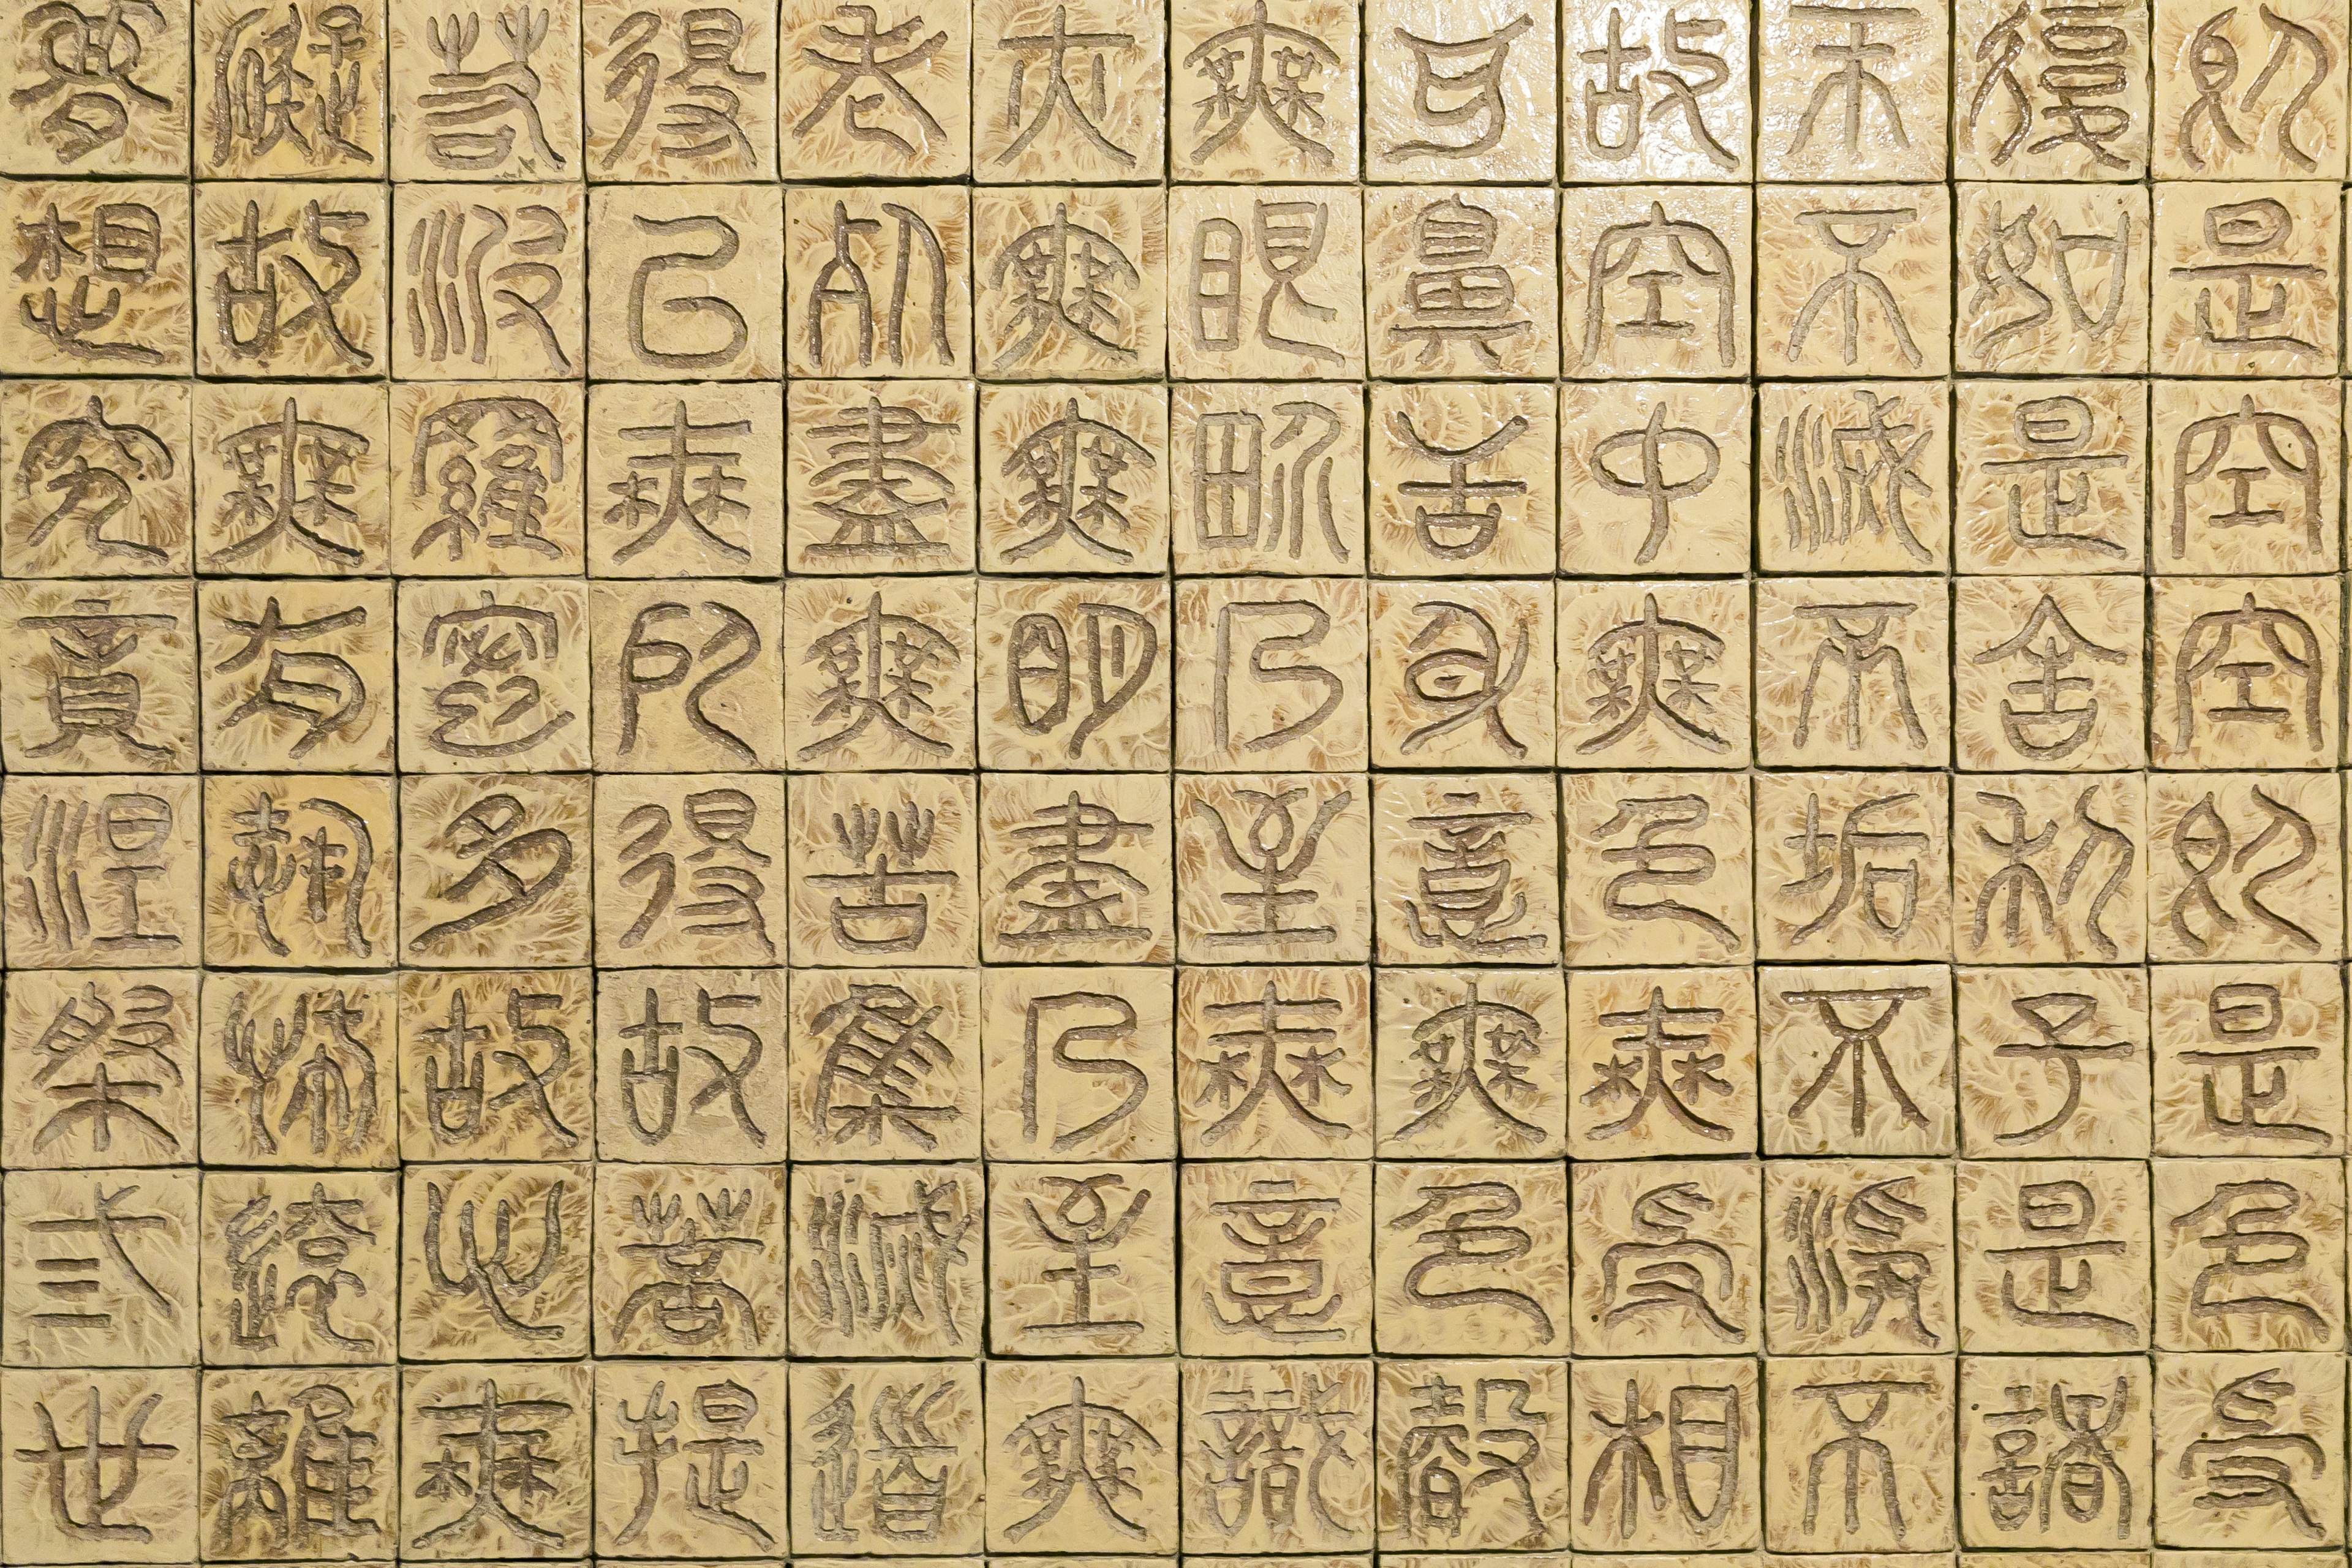 即是空空即是色受
復如是舍利子是諸
不滅不垢不淨不
故空中無色無受相
耳鼻舌身意無色聲
無眼界乃至無意識
亦無無明盡乃至無
老死盡無苦集滅道
得以無所得故菩提
若波羅蜜多故心無
礙故無有恐怖遠離
夢想究竟涅槃弎世